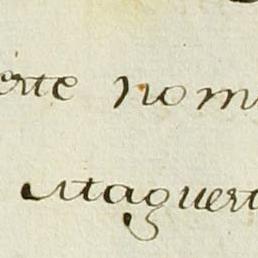 erte nom
Maguert